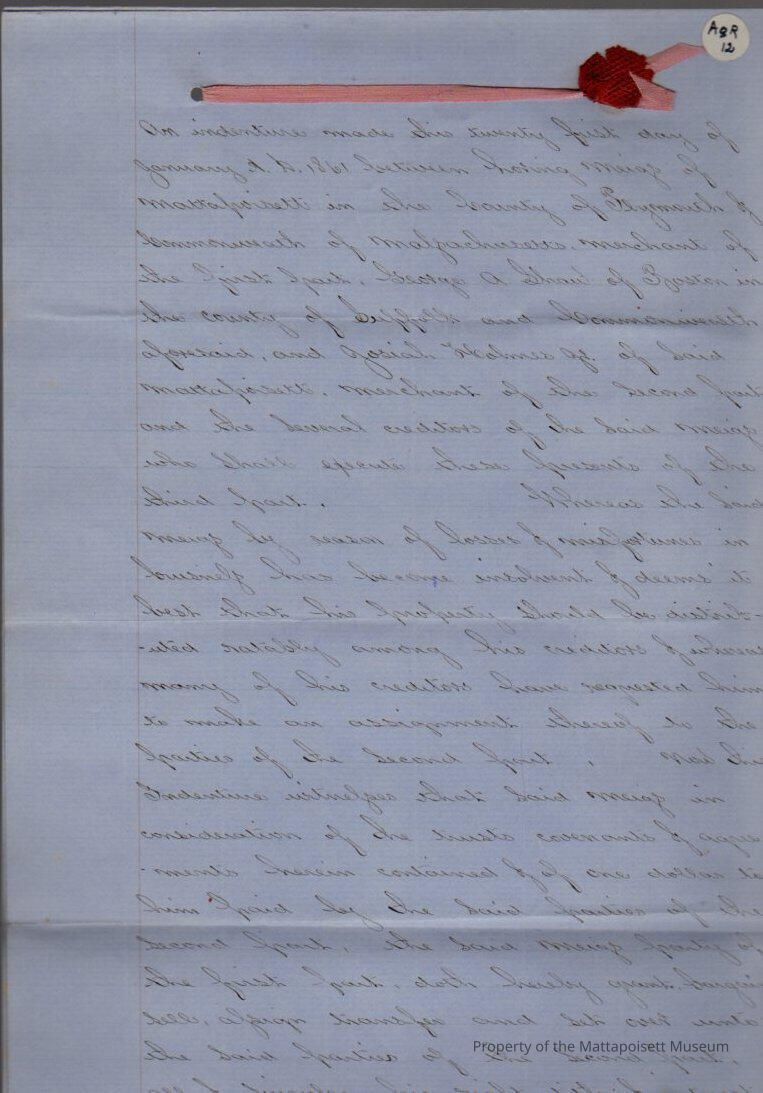 AgR
12
An indenture made this twenty first day of
January A.D. 1861 between Loring Meigs of
Mattapoisett in the County of Plymouth &
Commonwealth of Massachusetts. Merchant of
the first part, George A Shaw of Boston in
the county of Suffolk and Commonwealth
aforesaid, and Josiah Holmes Jr. of said
Mattapoisett. Merchant of the second part
and the several creditors of the said Meigs
who shall execute these presents of the
third part. Whereas the said
Meigs by reason of losses & misfortunes in
business has become insolvent & deems it
best that his property should be distrib-
-uted ratably among his creditors & whereas
many of his creditors have requested him
to make an assignment thereof to the
parties of the second part. Now this
Indenture witnesses that said Meigs in
consideration of the trusts covenants & agree
-ments herein contained & of one dollar to
him paid by the said parties of the
second part, the said Meigs party of
the first part, doth hereby grant, bargain
sell, assign transfer and set over unto
the said parties of the second part,
Property of the Mattapoisett Museum